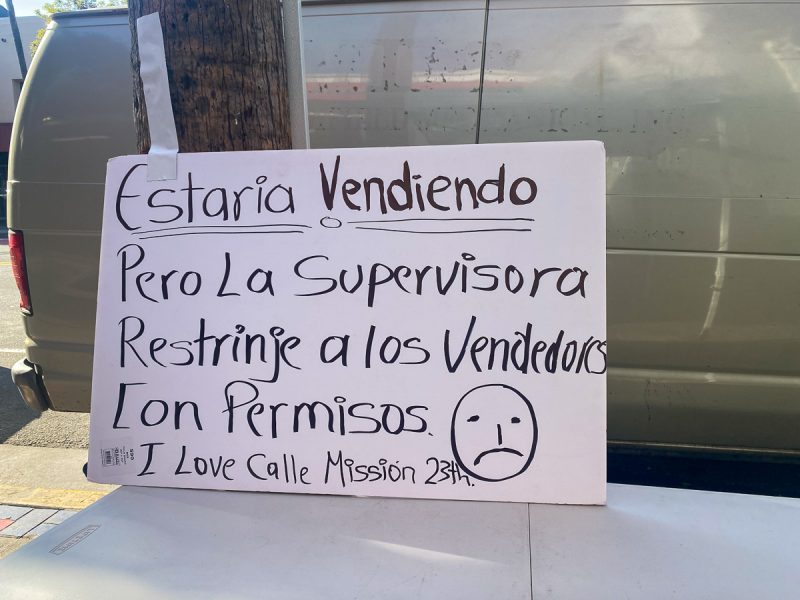 Estaria Vendiendo
Pero La Supervisora
Restrinje a los Vendedores
Con Permisos.
I Love Calle Mission 23th.